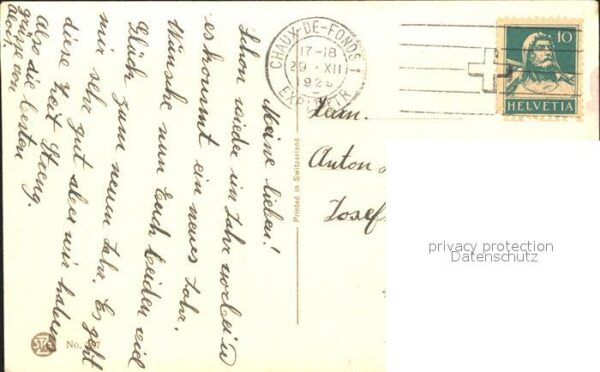 Meine lieben!
Schon wieder ein Jahr vorbei u
es kommt ein neues Jahr.
Wünsche nun Euch beiden viel
Glück zum neuen Jahr. Es geht
mir sehr gut aber wir haben
diese Zeit streng.
Also die besten
Grüsse von
CHAUX-DE-FONDS 1
17-18
29. XII
192
HELVETIA
10
Fam.
Anton
Josef
Printed in Switzerland
No.
privacy protection
Datenschutz